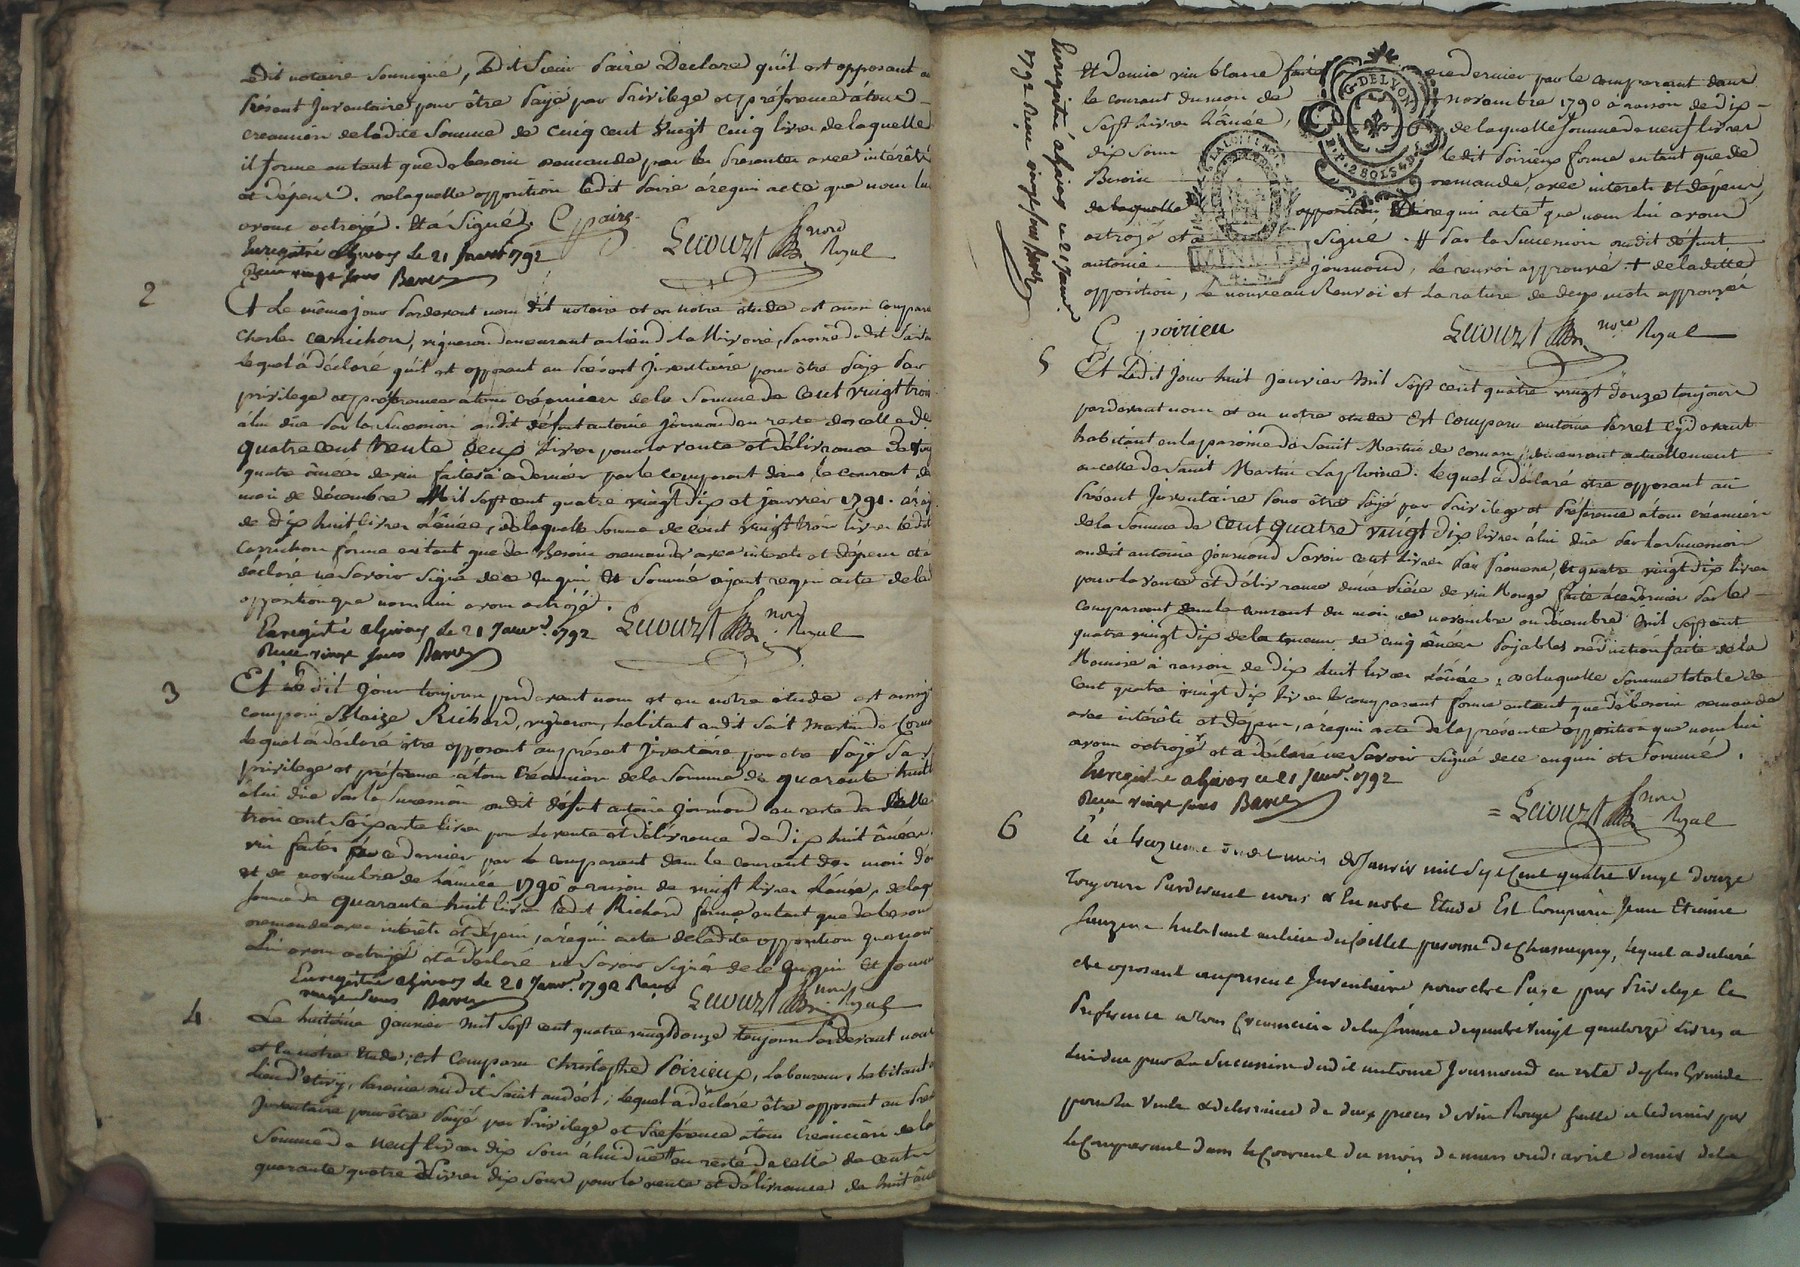 ledit notaire soussigné, ledit sieur Paire Declare qu'il est opposant au
présent Inventaire pour être Payé par Privilege et préférence à tous
creanciers de ladite Somme de cinq cent vingt cinq livres de laquelle
il forme en tant que de besoin demande par les Presentes avec intérêts
et dépens. de laquelle opposition ledit Paire a requis acte que nous lui
avons octroyé. Et a Signé. C paire
Lecourt nore Royal
Enregistré a Givors le 21 Janvr 1792
Reçu vingt sous Barre
2
Et Le même jour Pardevant nous dit notaire et en notre étude est aussi comparu
Charles Cornichon, vigneron demeurant au lieu de la Missoire, Paroisse dudit Saint
lequel a déclaré qu'il est opposant au Présent Inventaire pour être Payé Par
privilege et préférence à tous créanciers de la Somme de Cent vingt trois
à lui due Par la Succession dudit défunt antoine jourmond en reste de celle de
quatre cent trente deux livres pour la vente et délivrance de vingt
quatre ânées de vin faites à ce dernier par le comparant dans le courant des
mois de décembre Mil sept cent quatre vingt dix et janvier 1791. à raison
de dix huit livres L'ânée, de laquelle somme de Cent vingt trois livres ledit
Cornichon forme en tant que de Besoin demande avec intérêts et dépens et a
déclaré ne Savoir Signé de ce Enquis Et Sommé ayant requis acte de la
opposition que nous lui avons octroyé.
Lecourt nore Royal
Enregistré a Givors le 21 Janvr. 1792
Reçu vingt sous Barre
3
Et ledit jour toujours pardevant nous et en notre étude est aussi
comparu Blaize Richard, vigneron, habitant audit Saint Martin de Cornas
lequel a déclaré être opposant au présent Inventaire pour être Payé Par
privilege et préférence à tous Créanciers de la Somme de quarante huit
à lui due Par la Succession dudit défunt antoine jourmond en reste de celle
trois cent Soixante livres pour la vente et délivrance de dix huit ânées
vin faites à ce dernier par le comparant dans le courant des mois d'o
et de novembre de L'année 1790 à raison de vingt livres L'ânée, de laq
somme de quarante huit livres ledit Richard forme en tant que de besoin
demande avec intérêts et dépens, a requis acte de ladite opposition que nous
Lui avons octroyé et a déclaré ne Savoir Signé de ce Enquis Et Sommé
Enregistré a Givors le 21 Janvr. 1792 Reçu
vingt sous Barre
Lecourt nore Royal
4
Le huitième janvier Mil Sept cent quatre vingt douze toujours Pardevant nous
et en notre étude, est Comparu Christophe Poirieux, Laboureur, habitant
Lieu d'etivy, Paroisse dudit Saint andéol, lequel a déclaré être opposant au Présent
Inventaire pour être Payé par Privilege et Préférence à tous Créanciers de la
Somme de neuf livres dix Sous à lui due en reste de celle de cent
quarante quatre Livres dix Sous pour la vente et délivrance de huit ânées
Enregistré a Givors ce 21 Janvr.
1792 Reçu vingt sous Barre
Et Demie vin blanc faite à ce dernier par le comparant dans
le courant du mois de novembre 1790 à raison de dix
Sept Livres L'ânée, de laquelle Somme de neuf livres
dix Sous ledit Poirieux forme en tant que de
Besoin demande, avec interets et dépens,
de laquelle opposition a requis acte + que nous lui avons
octroyé et a Signé. # Par la Succession dudit défunt
antoine jourmond, le renvoi approuvé. + de ladite
opposition, le nouveau Renvoi et la rature de deux mots approuvés
G. DE LYON
2 SOLS
LA LOI ET LE ROI
MINUTE
4 S.
C poirieu
Lecourt nore Royal
5
Et Ledit Jour huit janvier Mil Sept cent quatre vingt douze toujours
pardevant nous et en notre étude Est Comparu antoine Parret cydevant
habitant en la paroisse de Saint Martin de cornas, demeurant actuellement
en celle de Saint Martin La plaine. lequel a déclaré être opposant au
Présent Inventaire Pour être Payé par Privilege et Préférence à tous créanciers
de la Somme de Cent quatre vingt Dix livres à lui due Par la Succession
dudit antoine jourmond Savoir cent livres Par Promesse, Et quatre vingt dix livres
pour la vente et délivrance d'une Pièce de vin Rouge faite à ce dernier Par le
comparant dans le courant du mois de novembre ou décembre Mil Sept cent
quatre vingt dix de la teneur de cinq ânées Payables déduction faite de la
Mauvise à raison de dix huit livres L'ânée, de laquelle Somme totale de
Cent quatre vingt dix livres le comparant forme en tant que de besoin demande
avec intérêts et dépens, a requis acte de la présente opposition que nous lui
avons octroyé et a déclaré ne Savoir Signé de ce enquis et Sommé.
Enregistré a Givors ce 21 Janvr. 1792
Reçu vingt sous Barre
= Lecourt nore Royal
6
Et le treizieme dudit mois de Janvier mil Sept Cent quatre Vingt douze
Toujours Pardevant nous & En notre Etude Est Comparu Jean Etienne
habitant au lieu du paroisse de Chassagny, lequel a déclaré
être oposant au present Inventaire pour etre Payé par Privilege Et
Preference a tous Creanciers de la Somme de quatre vingt quatorze Livres a
Lui due par la Succession dudit antoine Jourmond en reste de plus Grande
pour la Vente & délivrance de deux pieces de Vin Rouge faitte a ce dernier par
le Comparant dans le Courant du mois de mars ou d'avril dernier de la